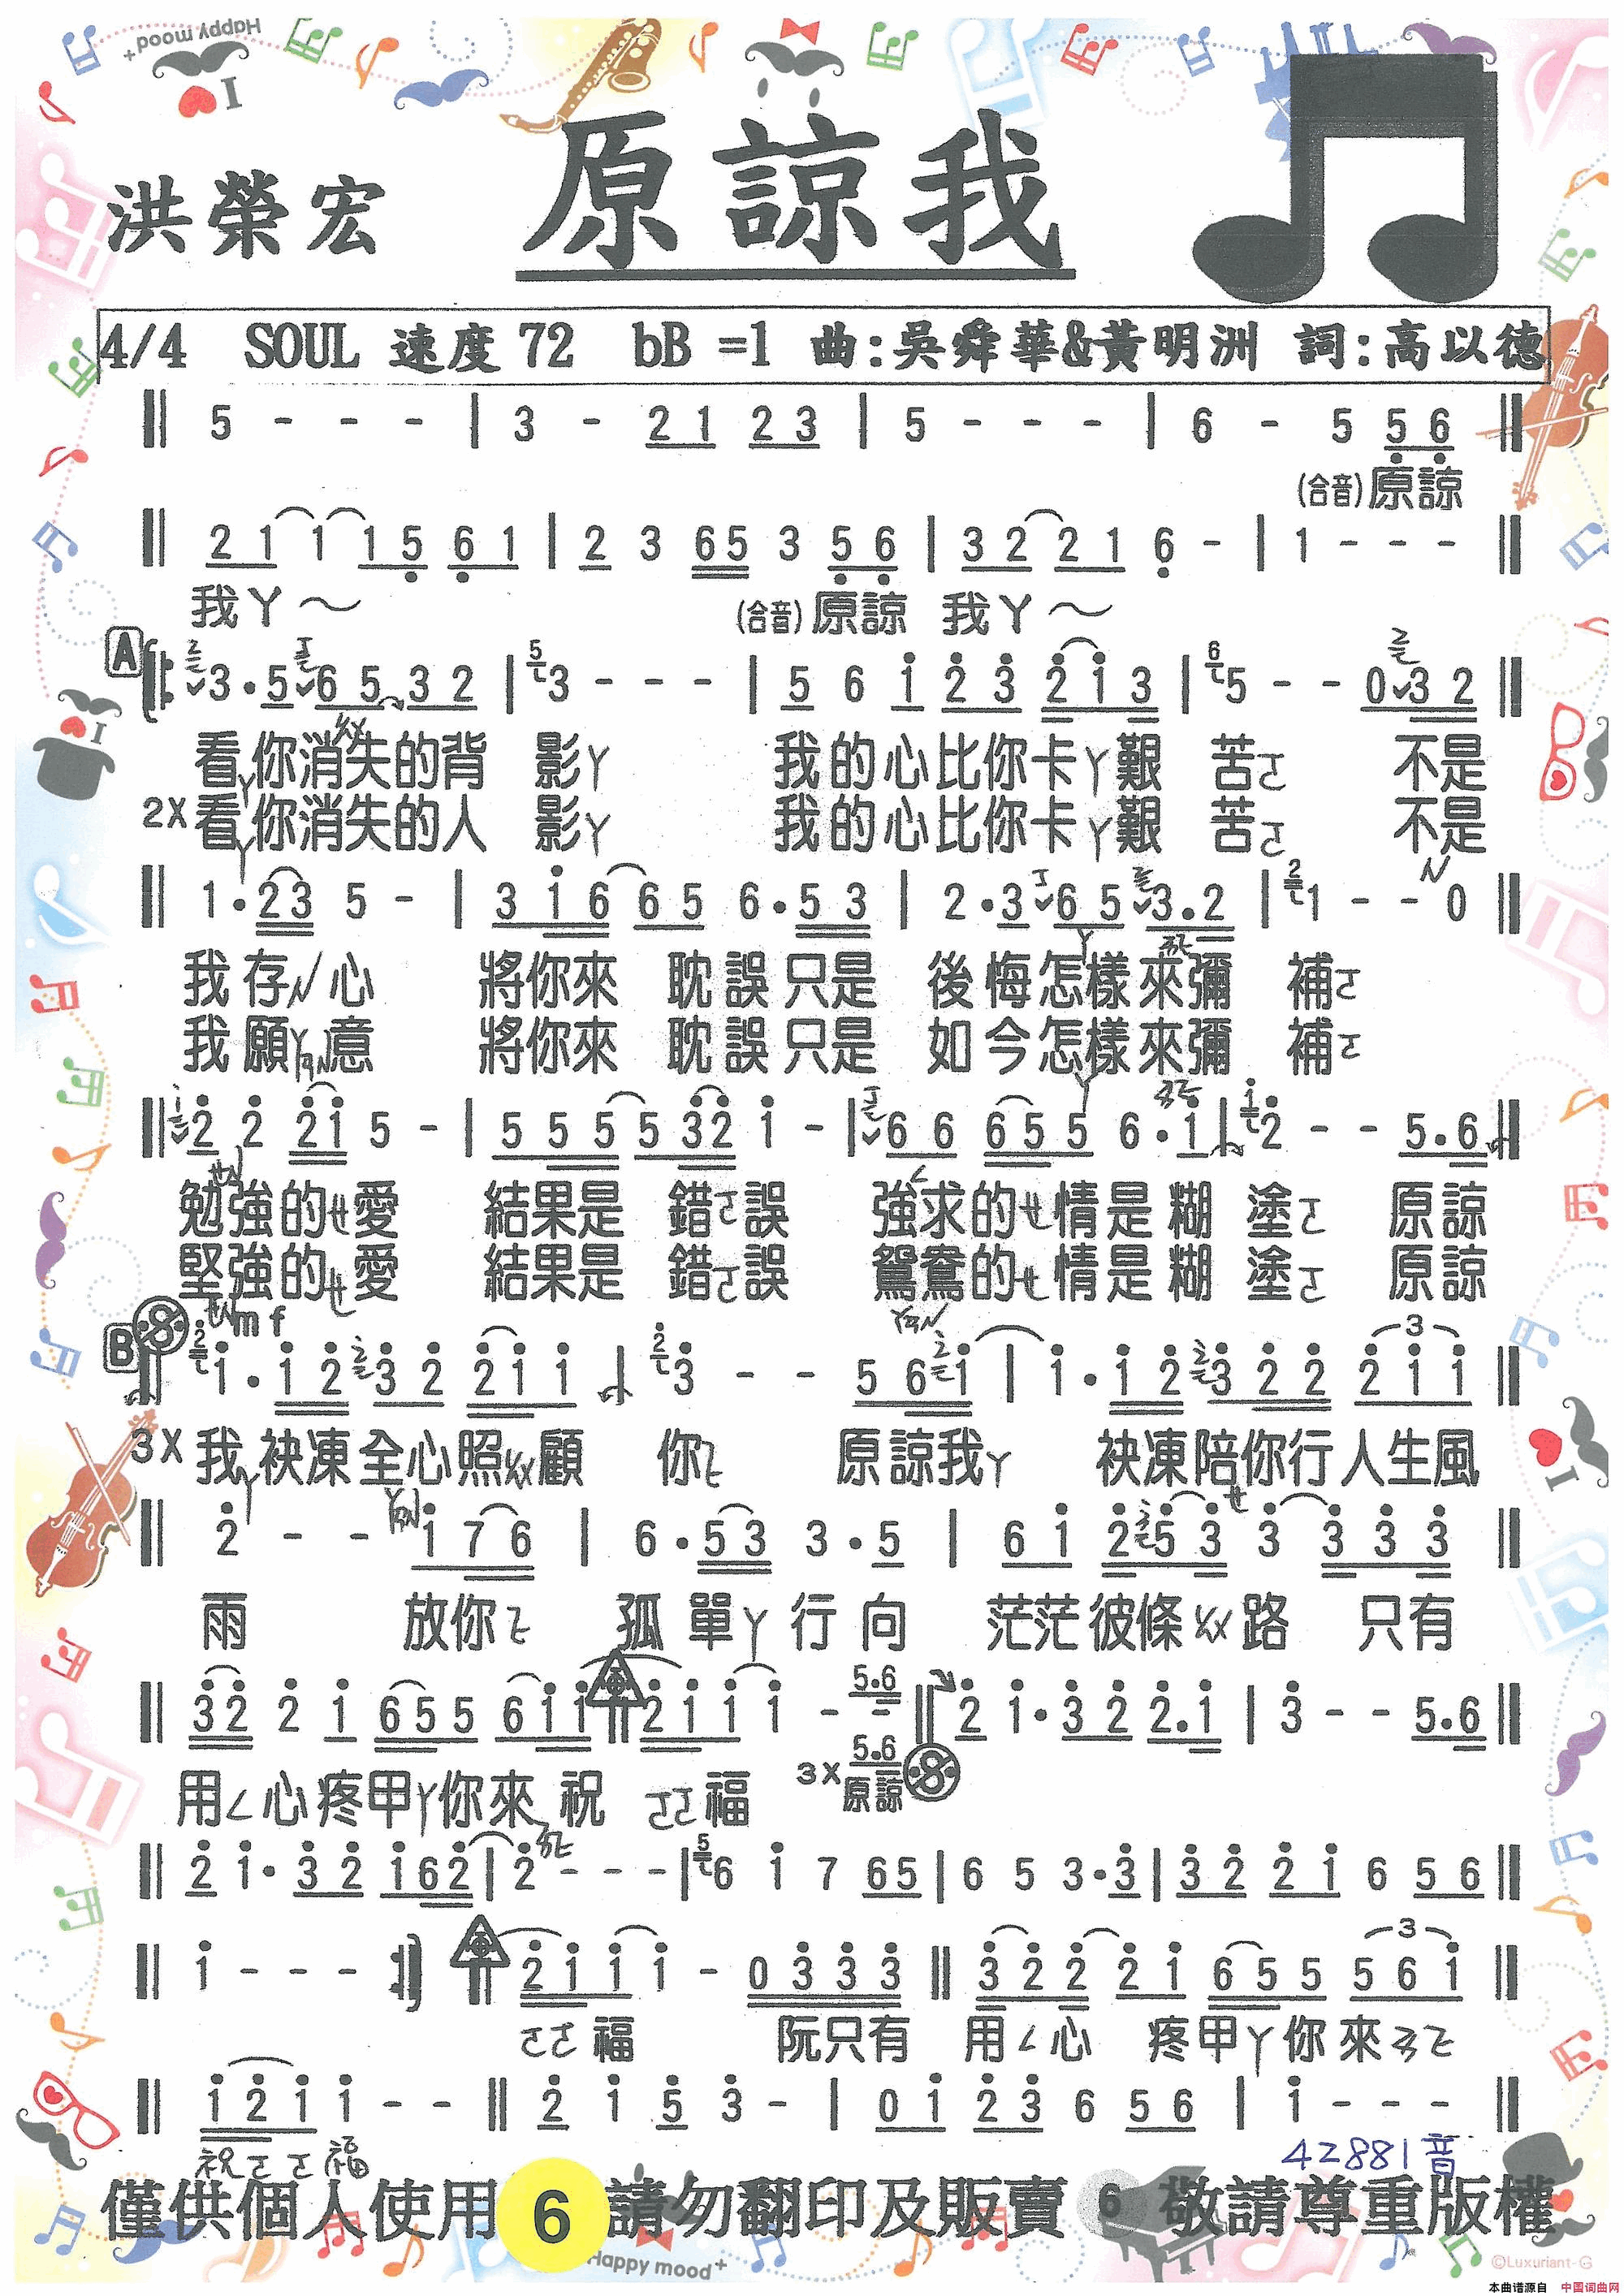 Happy mood+
I
原諒我
洪榮宏
4/4 SOUL 速度 72 bB =1 曲:吳舜華&黃明洲 詞:高以德
5 - - - | 3 - 21 23 | 5 - - - | 6 - 5 56
(合音)原諒
21 1 15 61 | 2 3 65 3 56 | 32 21 6 - | 1 - - -
我ㄚ～ (合音)原諒 我ㄚ～
A 3·5 65 32 | 3 - - - | 5 6 1 23 213 | 5 - - 032
看你消失的背 影ㄚ 我的心比你卡ㄚ艱 苦ㄛ 不是
2X 看你消失的人 影ㄚ 我的心比你卡ㄚ艱 苦ㄛ 不是
1·23 5 - | 316 65 6·53 | 2·3 65 3.2 | 1 - - 0
我存ㄣ心 將你來 耽誤只是 後悔怎樣來彌 補ㄛ
我願意 將你來 耽誤只是 如今怎樣來彌 補ㄛ
2 2 21 5 - | 555 532 1 - | 66 655 6·1 | 2 - - 5.6
勉強的ㄝ愛 結果是 錯ㄛ誤 強求的ㄝ情是糊 塗ㄛ 原諒
堅強的ㄝ愛 結果是 錯ㄛ誤 鴛鴦的ㄝ情是糊 塗ㄛ 原諒
mf
B 1·12 32 211 | 3 - - 561 | 1·12 322 211
3X 我 袂凍全心照ㄨ顧 你ㄜ 原諒我ㄚ 袂凍陪你行人生風
2 - - 176 | 6·53 3·5 | 61 253 3 333
雨 放你ㄜ 孤單ㄚ行向 茫茫彼條ㄨ路 只有
32 2 1 655 611 2111 - 5.6 2 1·32 2.1 | 3 - - 5.6
用ㄑ心疼甲ㄚ你來 祝 ㄛㄛ福 3X 5.6 原諒
2 1·32 162 | 2 - - - | 6 1 7 65 | 6 5 3·3 | 32 21 6 56
1 - - - 2111 - 0333 322 21 655 561
ㄛㄛ福 阮只有 用ㄑ心 疼甲ㄚ你來ㄞ
121 1 - - 2 1 5 3 - | 01 23 6 56 | 1 - - -
祝ㄛㄛ福
42881音
僅供個人使用 6 請勿翻印及販賣 6 敬請尊重版權
Happy mood+
©Luxuriant-G
本曲谱源自 中国词曲网